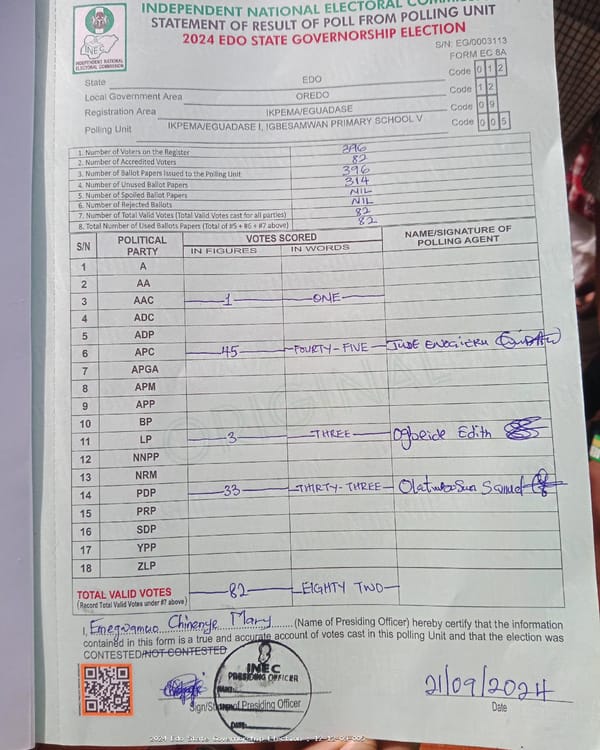 INDEPENDENT NATIONAL ELECTORAL
STATEMENT OF RESULT OF POLL FROM POLLING UNIT
2024 EDO STATE GOVERNORSHIP ELECTION
INEC
INDEPENDENT NATIONAL ELECTORAL COMMISSION
S/N: EG/0003113
FORM EC 8A
State EDO Code 0 1 2
Local Government Area OREDO Code 1 2
Registration Area IKPEMA/EGUADASE Code 0 9
Polling Unit IKPEMA/EGUADASE I, IGBESAMWAN PRIMARY SCHOOL V Code 0 0 5
1. Number of Voters on the Register 396
2. Number of Accredited Voters 82
3. Number of Ballot Papers Issued to the Polling Unit 396
4. Number of Unused Ballot Papers 314
5. Number of Spoiled Ballot Papers NIL
6. Number of Rejected Ballots NIL
7. Number of Total Valid Votes (Total Valid Votes cast for all parties) 82
8. Total Number of Used Ballots Papers (Total of #5 + #6 + #7 above) 82
S/N POLITICAL PARTY VOTES SCORED IN FIGURES IN WORDS NAME/SIGNATURE OF POLLING AGENT
1 A
2 AA
3 AAC 1 ONE
4 ADC
5 ADP
6 APC 45 FOURTY-FIVE JUDE ENOGIERU
7 APGA
8 APM
9 APP
10 BP
11 LP 3 THREE Ogbeide Edith
12 NNPP
13 NRM
14 PDP 33 THIRTY-THREE Olatubosun Samuel
15 PRP
16 SDP
17 YPP
18 ZLP
TOTAL VALID VOTES 82 EIGHTY TWO
(Record Total Valid Votes under #7 above)
I, Chinenye Mary (Name of Presiding Officer) hereby certify that the information
contained in this form is a true and accurate account of votes cast in this polling Unit and that the election was
CONTESTED/NOT CONTESTED
INEC
PRESIDING OFFICER
DATE
Presiding Officer
21/09/2024
Date
2024 Edo State Governorship Election
ORIGINAL